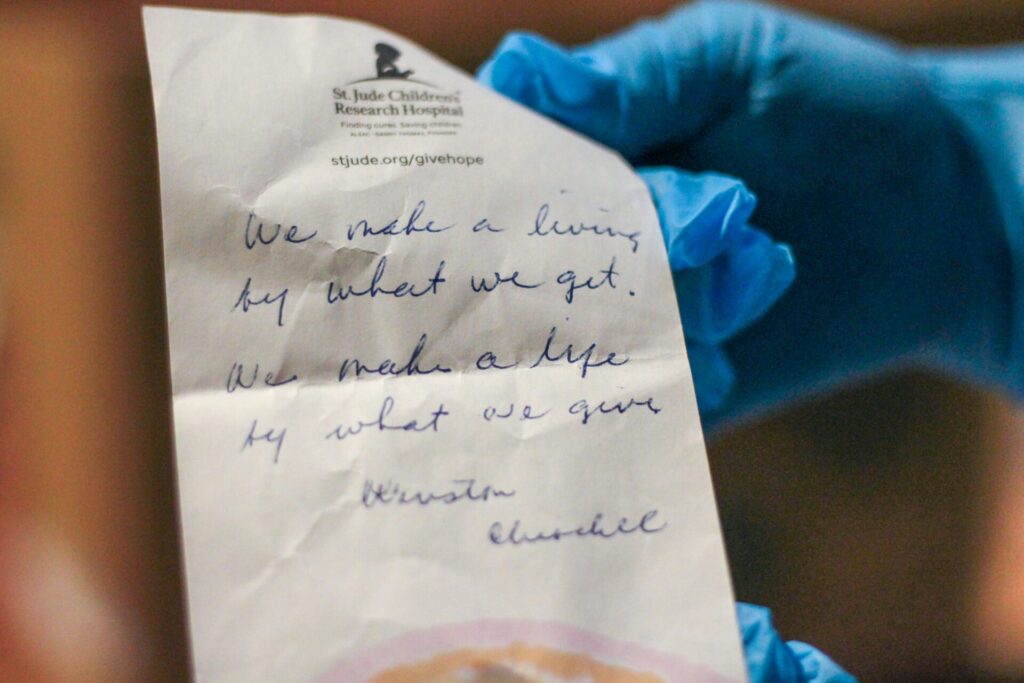 St. Jude Children's
Research Hospital
Finding cures. Saving children.
ALSAC • DANNY THOMAS, FOUNDER
stjude.org/givehope
We make a living
by what we get.
We make a life
by what we give
Winston
Churchill